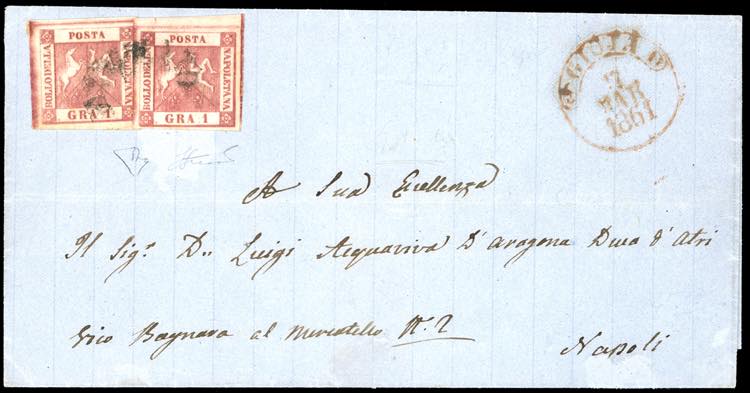 POSTA
BOLLO DELLA
NAPOLETANA
GRA 1
POSTA
BOLLO DELLA
NAPOLETANA
GRA 1
GIOIA
7
MAR
1861
A Sua Eccellenza
Il Sig.r D.n Luigi Acquaviva D'Aragona Duca d'Atri
Vico Bagnara al Mercatello N. 2
Napoli